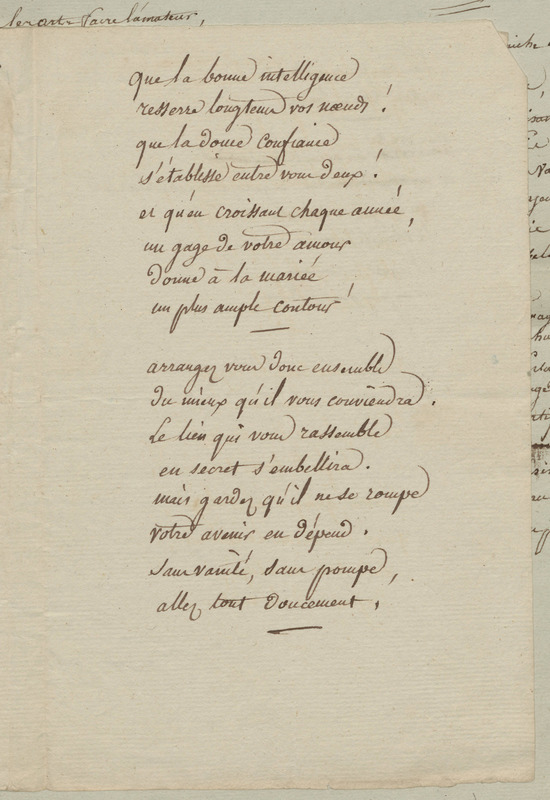 les arts faire l'amateur,
que la bonne intelligence
resserre longtems vos nœuds !
que la douce confiance
s'établisse entre vous deux !
et qu'en croissant chaque année,
un gage de votre amour
donne à la mariée
un plus ample contour !
arrangez vous donc ensemble
du mieux qu'il vous conviendra .
Le lien qui vous rassemble
en secret s'embellira .
mais gardez qu'il ne se rompe
votre avenir en dépend .
sans vanité, sans pompe,
allez tout doucement .